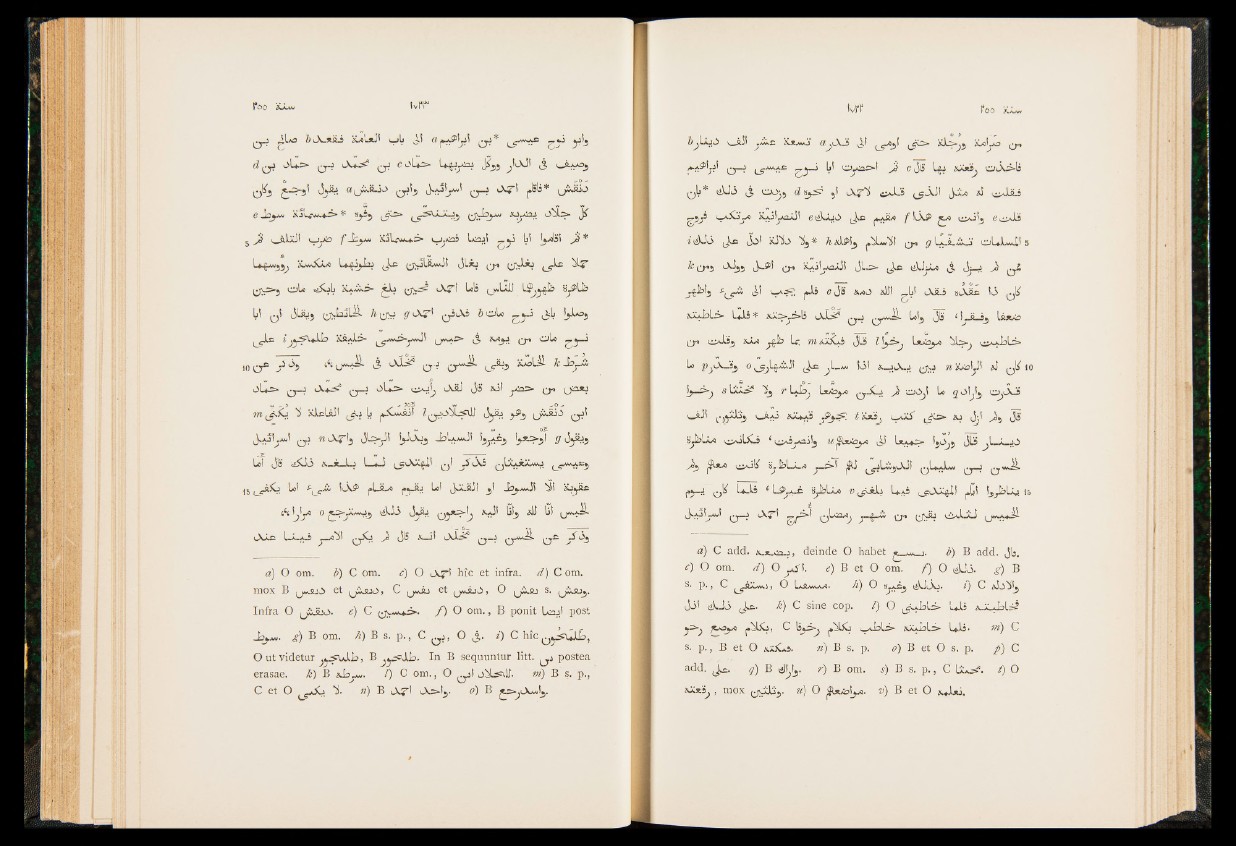 سنة ٢٥٥ ١٧٢٢
من صرامة ورُجْلة حتى اومى الى قدر a تسعة عشر الف دينار b
فاخذت رقعته بها قال c ثم احضرت ابا نوح عيسى بن ابراهيم
فقلت له مثل الذى قلت لاحمد او نحوه d وزدت فى ذلك *بان
قلت e وانت مع هذا f مقيم على دينك e النصرانية مرتكب فروج
5 المسلمات تشفّيا g من الاسلام واهله h *ولا دلالة ادلّ على ذلك i
ممّن لم يزل فى منزلك على حال النصرانية من اهل وولد ومن k
كان ذا عَقْده فقد اباح الله دمه قال e فلم يجب الى شىء واظهر
ضعفا وفقرا، قال واما الحسن بن مخلّد فاخرجته *فلمّا خاطبته
خاطبت رجلا موضعا رخوا l قال فبكّته m بما ظهر منه وقلت من
10 كان له الراضة n بين يديه اذا سار على الشهارى o وقدر p ما
قدرت واراد q ما اردت لم يكن موضعا رطبا r ولا مخنّثا s رخوا
قال ولم ازل به حتى كتب رقعة t بجوهر قيمته نيف وثلثون الف
دينار قال وردّوا جميعا الى مواضعهم u وانصرفت، فكانت مناظرة
الحسن بن سليمان الدوشابى لهم آخر مناظرة كانت معهم ولم
15 يناظروا ايّام المهتدى فيما بلغنى v مناظرة غيرها، فلما كان يوم
الخميس لثلث بقين من شهر رمضان اخرج احمد بن اسرائيل
a) C add. , deinde O habet . b) B add. قال.
c) O om. d) O اكثر. e) B et O om. f) O ذلك. g) B
s. p., C , O . h) O وغيره بذلك. i) C والادلة
على ذلك ادل. k) C sine cop. l) O
رخو. m) C
s. p., B et O . n) B s. p. o) B et O s. p. p) C
add. على. q) B وارادك. r) B om. s) B s. p., C . t) O
رقعته, mox وثلثين. u) O مواضعهم. v) B et O نعلمه.
سنة ٢٥٥ ١٧٢٣
وابو نوح عيسى *بن ابراهيم a الى باب العامّة فقعد b صالح بن
وصيف فى الدار ووكّل بضربهما حمّاد c بن محمّد بن حماد بن d
دنقش *فاقام احمد بن اسرائيل وابن دنقش a يقول اوجع وكان
كلّ جلاد يضربه سوطين ويتنحّى حتى وفوه *خمسمائة سوط e
5 *ثم اقاموا ابا نوح ايضا فضرب خمسمائة سوط f ضرب التلف ثم
حملا على بغلين من بغال السقّائين على بطونهما منكسة رؤوسهما
ظاهرة ظهورهما للناس فاما احمد فحين بلغ خشبة بابك مات وحين
وصلوا بابى نوح مات b فدفن احمد g بين h الحائطين ويقال ان ابا
نوح مات من يومه فى حبس السرخسى خليفة طلمجور i على
10 شرط k الخاصّة وبقى الحسن بن مخلّد فى الحبس، وذُكر عن
بعض من حضر انه قال لقد رأيت حماد بن محمد بن حمّاد
ابن دنقش وهو يقول للجلّادين l أنفسكم يا بنى الفاعلة لا يكنّى m
ويقول g أوجعوا وغيّروا السياط وبدلوا الرجال واحمد n بن اسرائيل
وعيسى يستغيثان فذكر ان المهتدى لمّا بلغه ذلك قال أما
15 عقوبة الّا السوط او القتل اما يقوم مقام هذا شىء، اما يكفى
الحبس انّا لله وانّا اليه راجعون يقول ذلك ويسترجع o مرارا،
وذكر عن الحسن بن مخلّد انه قال لم يكن الامر فينا عند
a) O om. b) C om. c) O احمد hic et infra. d) C om.
mox B et , C et , O s. .
Infra O . e) C خمسين. f) O om., B ponit ايضا post
سوط. g) B om. h) B s. p., C بن, O فى. i) C hic ,
O ut videtur , B . In B sequuntur litt. postea
erasae. k) B . l) C om., O . m) B s. p.,
C et O لا يكنى. n) B واخذ احمد. o) B .